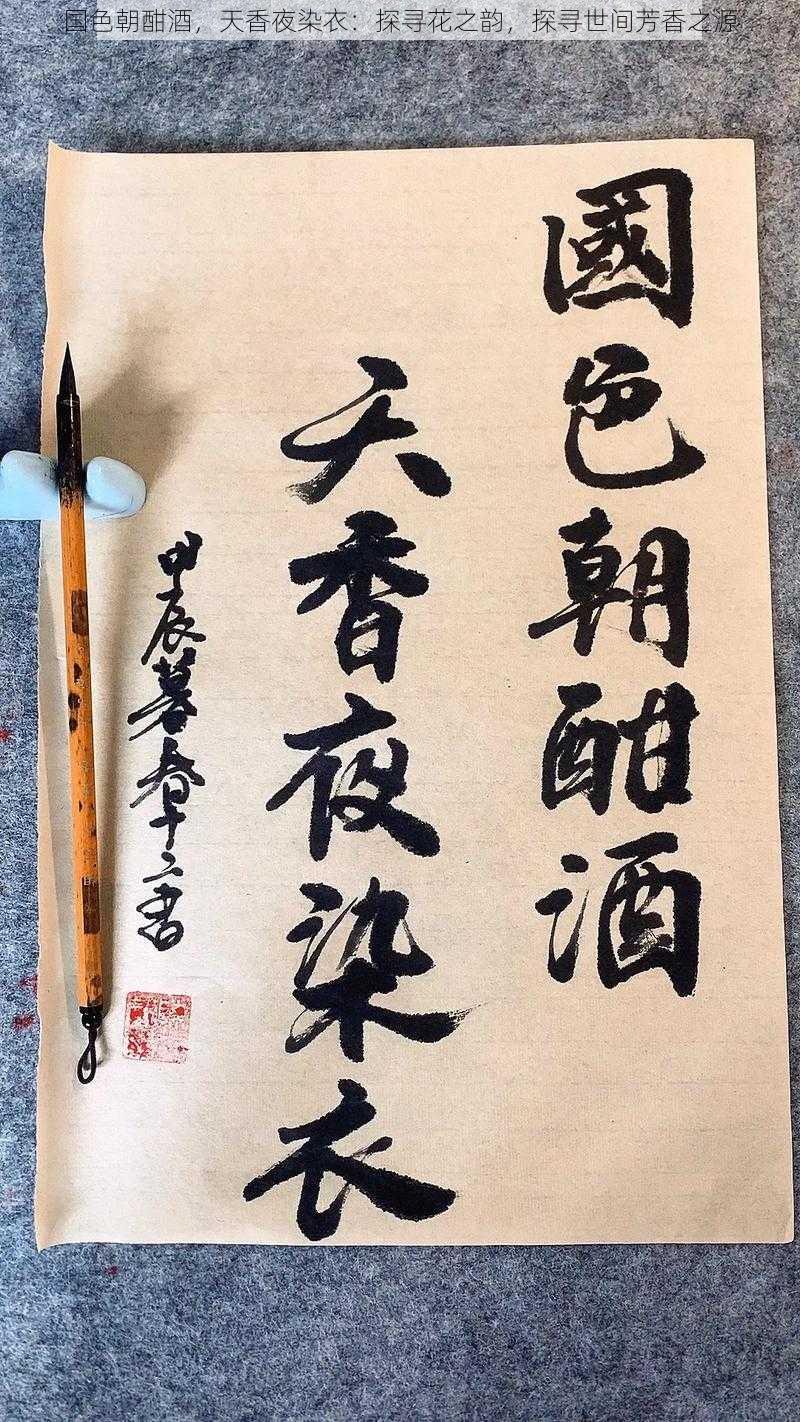 国色朝酣酒，天香夜染衣：探寻花之韵，探寻世间芳香之源
國色朝酣酒
天香夜染衣
甲辰暮春十二書